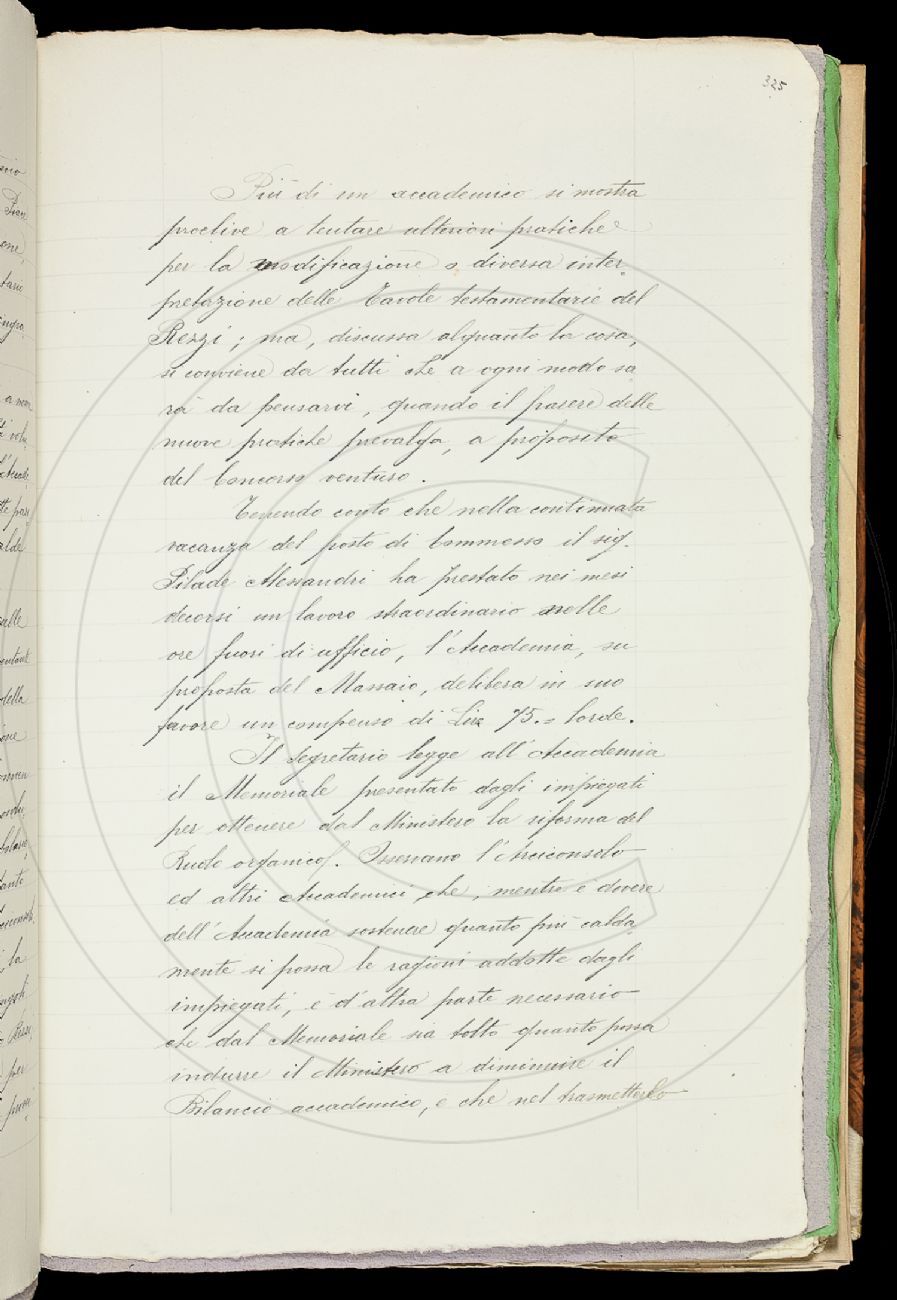 325
Più di un accademico si mostra
proclive a tentare ulteriori pratiche
per la modificazione o diversa inter
pretazione delle Tavole testamentarie del
Rezzi; ma, discussa alquanto la cosa,
si conviene da tutti che a ogni modo sa
rà da pensarvi, quando il parere delle
nuove pratiche prevalga, a proposito
del Concorso venturo.
Tenendo conto che nella continuata
vacanza del posto di Commesso il sig.
Pilade Alessandri ha prestato nei mesi
decorsi un lavoro straordinario nelle
ore fuori di ufficio, l'Accademia, su
proposta del Massaio, delibera in suo
favore un compenso di Lire 75.= lorde.
Il Segretario legge all'Accademia
il Memoriale presentato dagli impiegati
per ottenere dal Ministero la riforma del
Ruolo organico. Osservano l'Arciconsolo
ed altri Accademici che, mentre è dovere
dell'Accademia sostenere quanto più calda
mente si possa le ragioni addotte dagli
impiegati, è d'altra parte necessario
che dal Memoriale sia tolto quanto possa
indurre il Ministero a diminuire il
Bilancio accademico, e che nel trasmetterlo